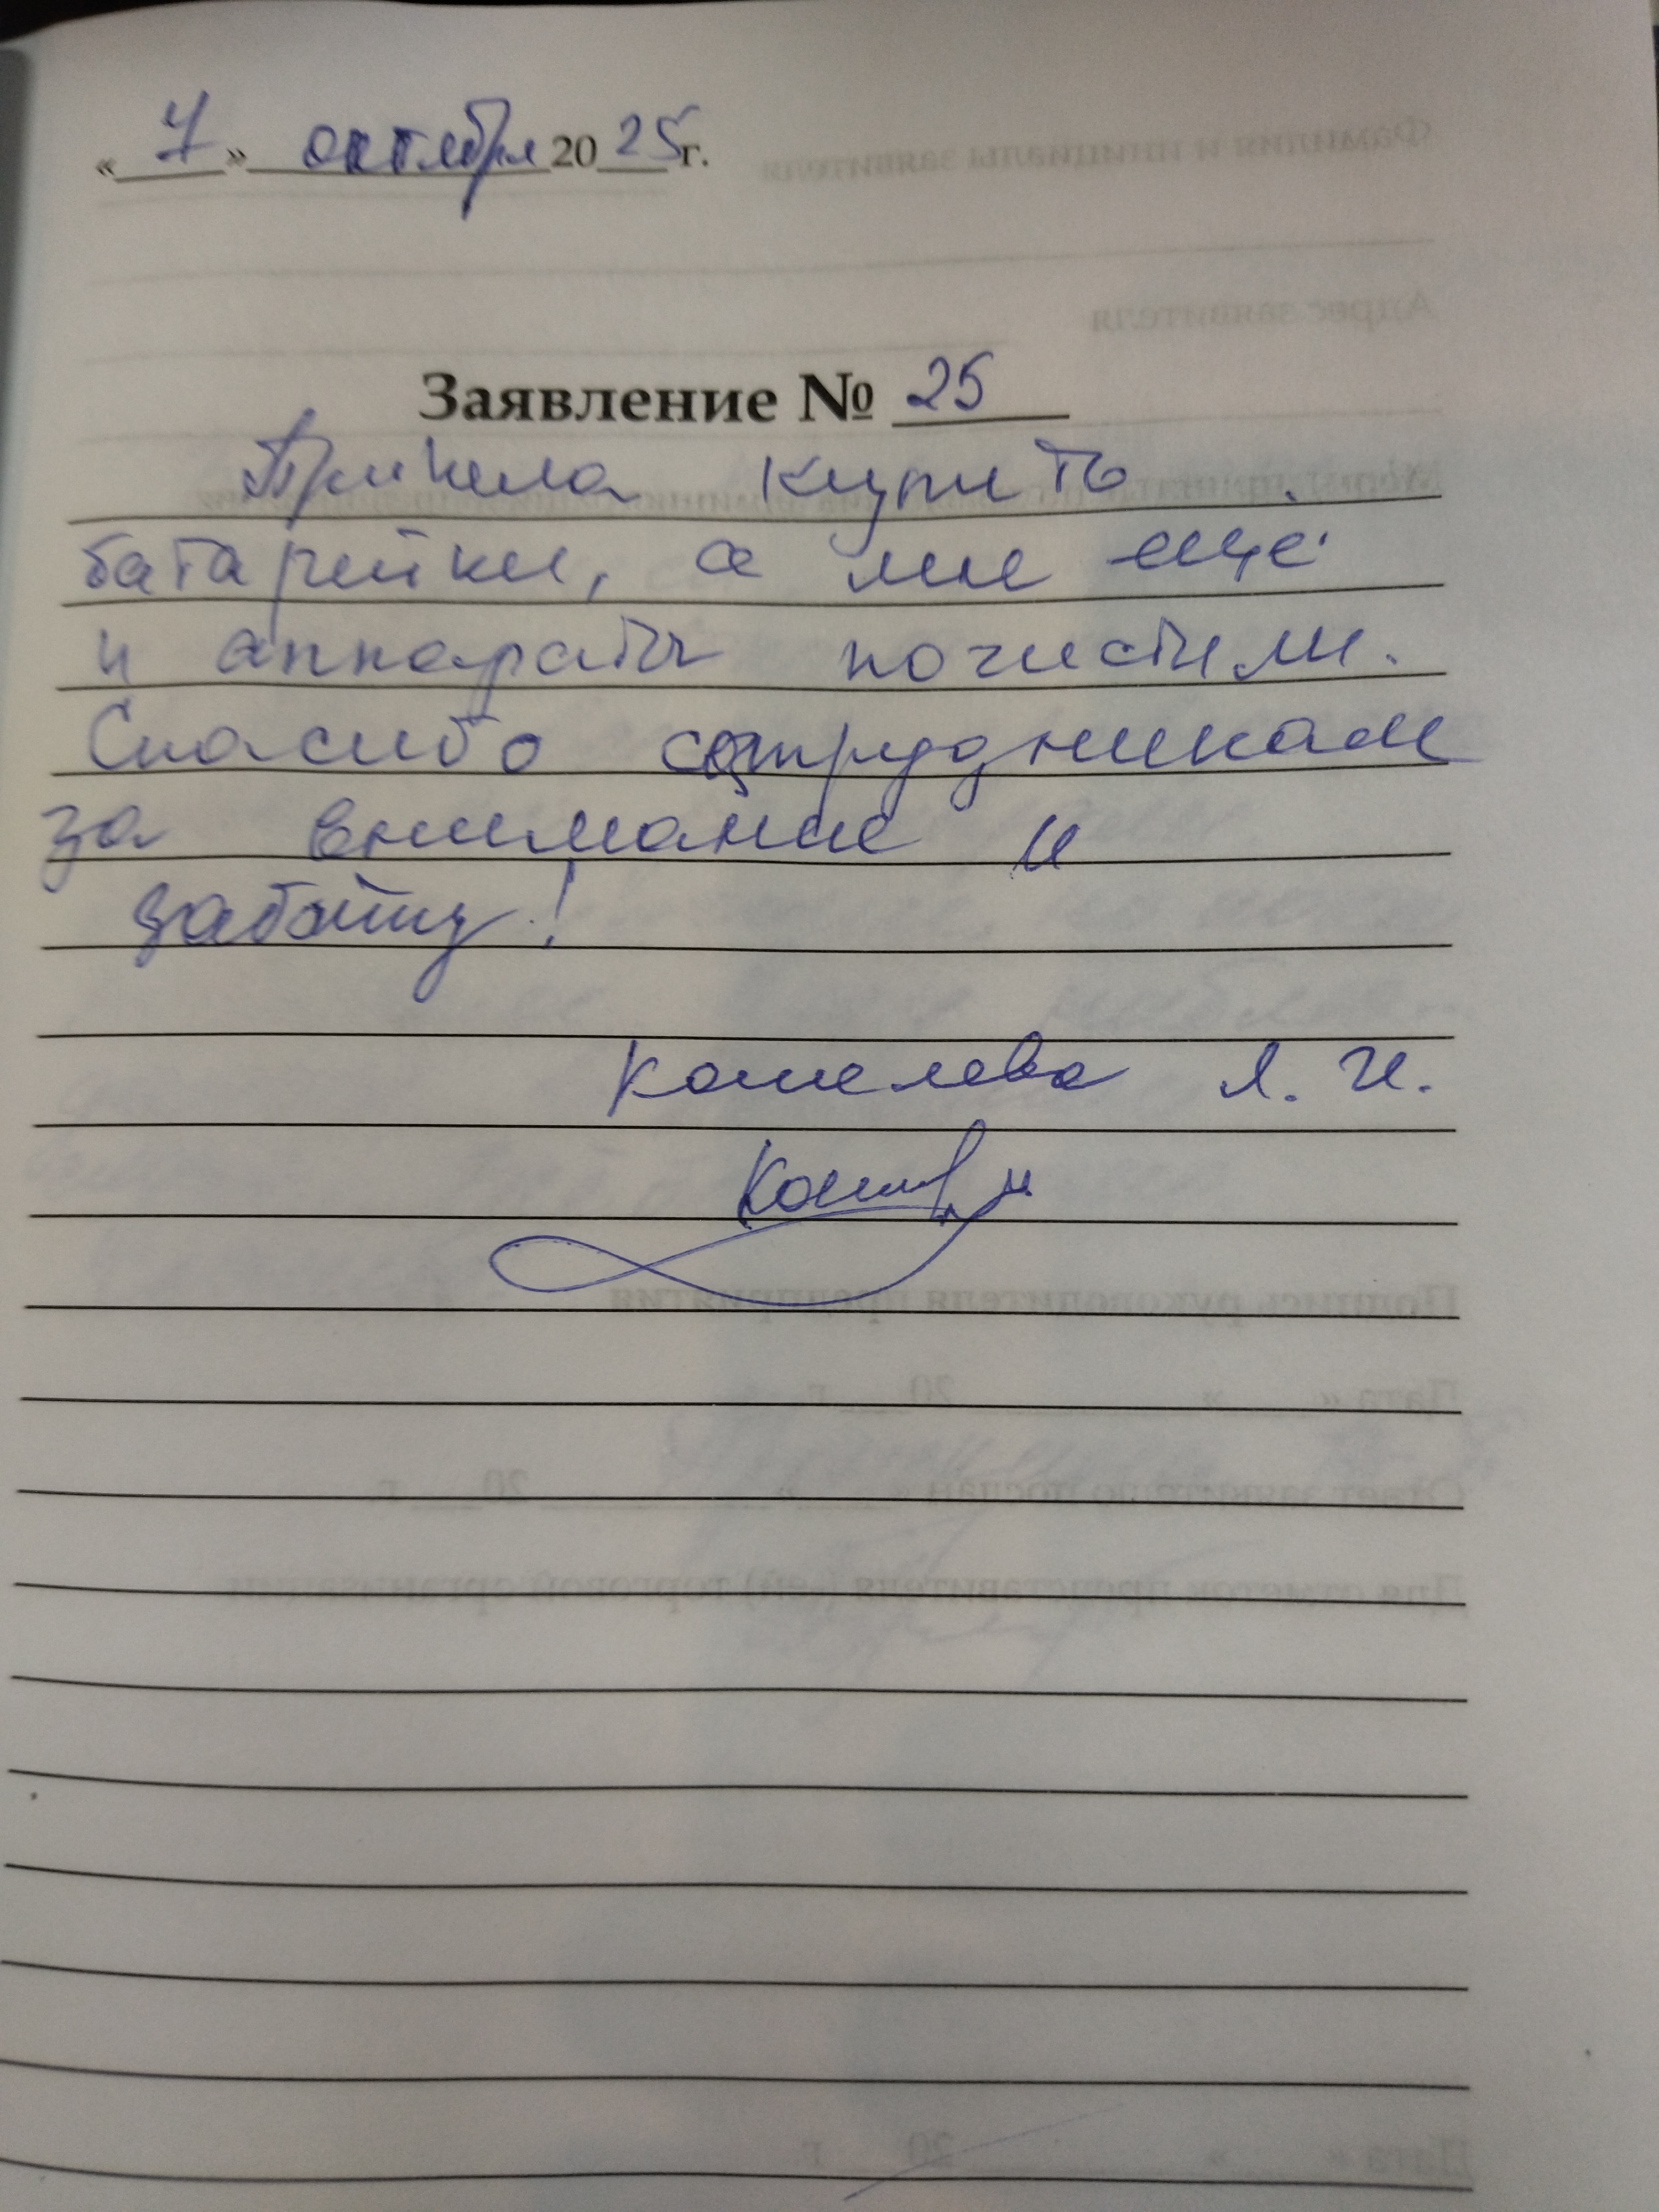 « 7 » октября 2025г.
Заявление № 25
Пришла купить
батарейки, а мне еще
и аппараты почистили.
Спасибо сотрудникам
за внимание и
заботу!
Кошелева Л. И.